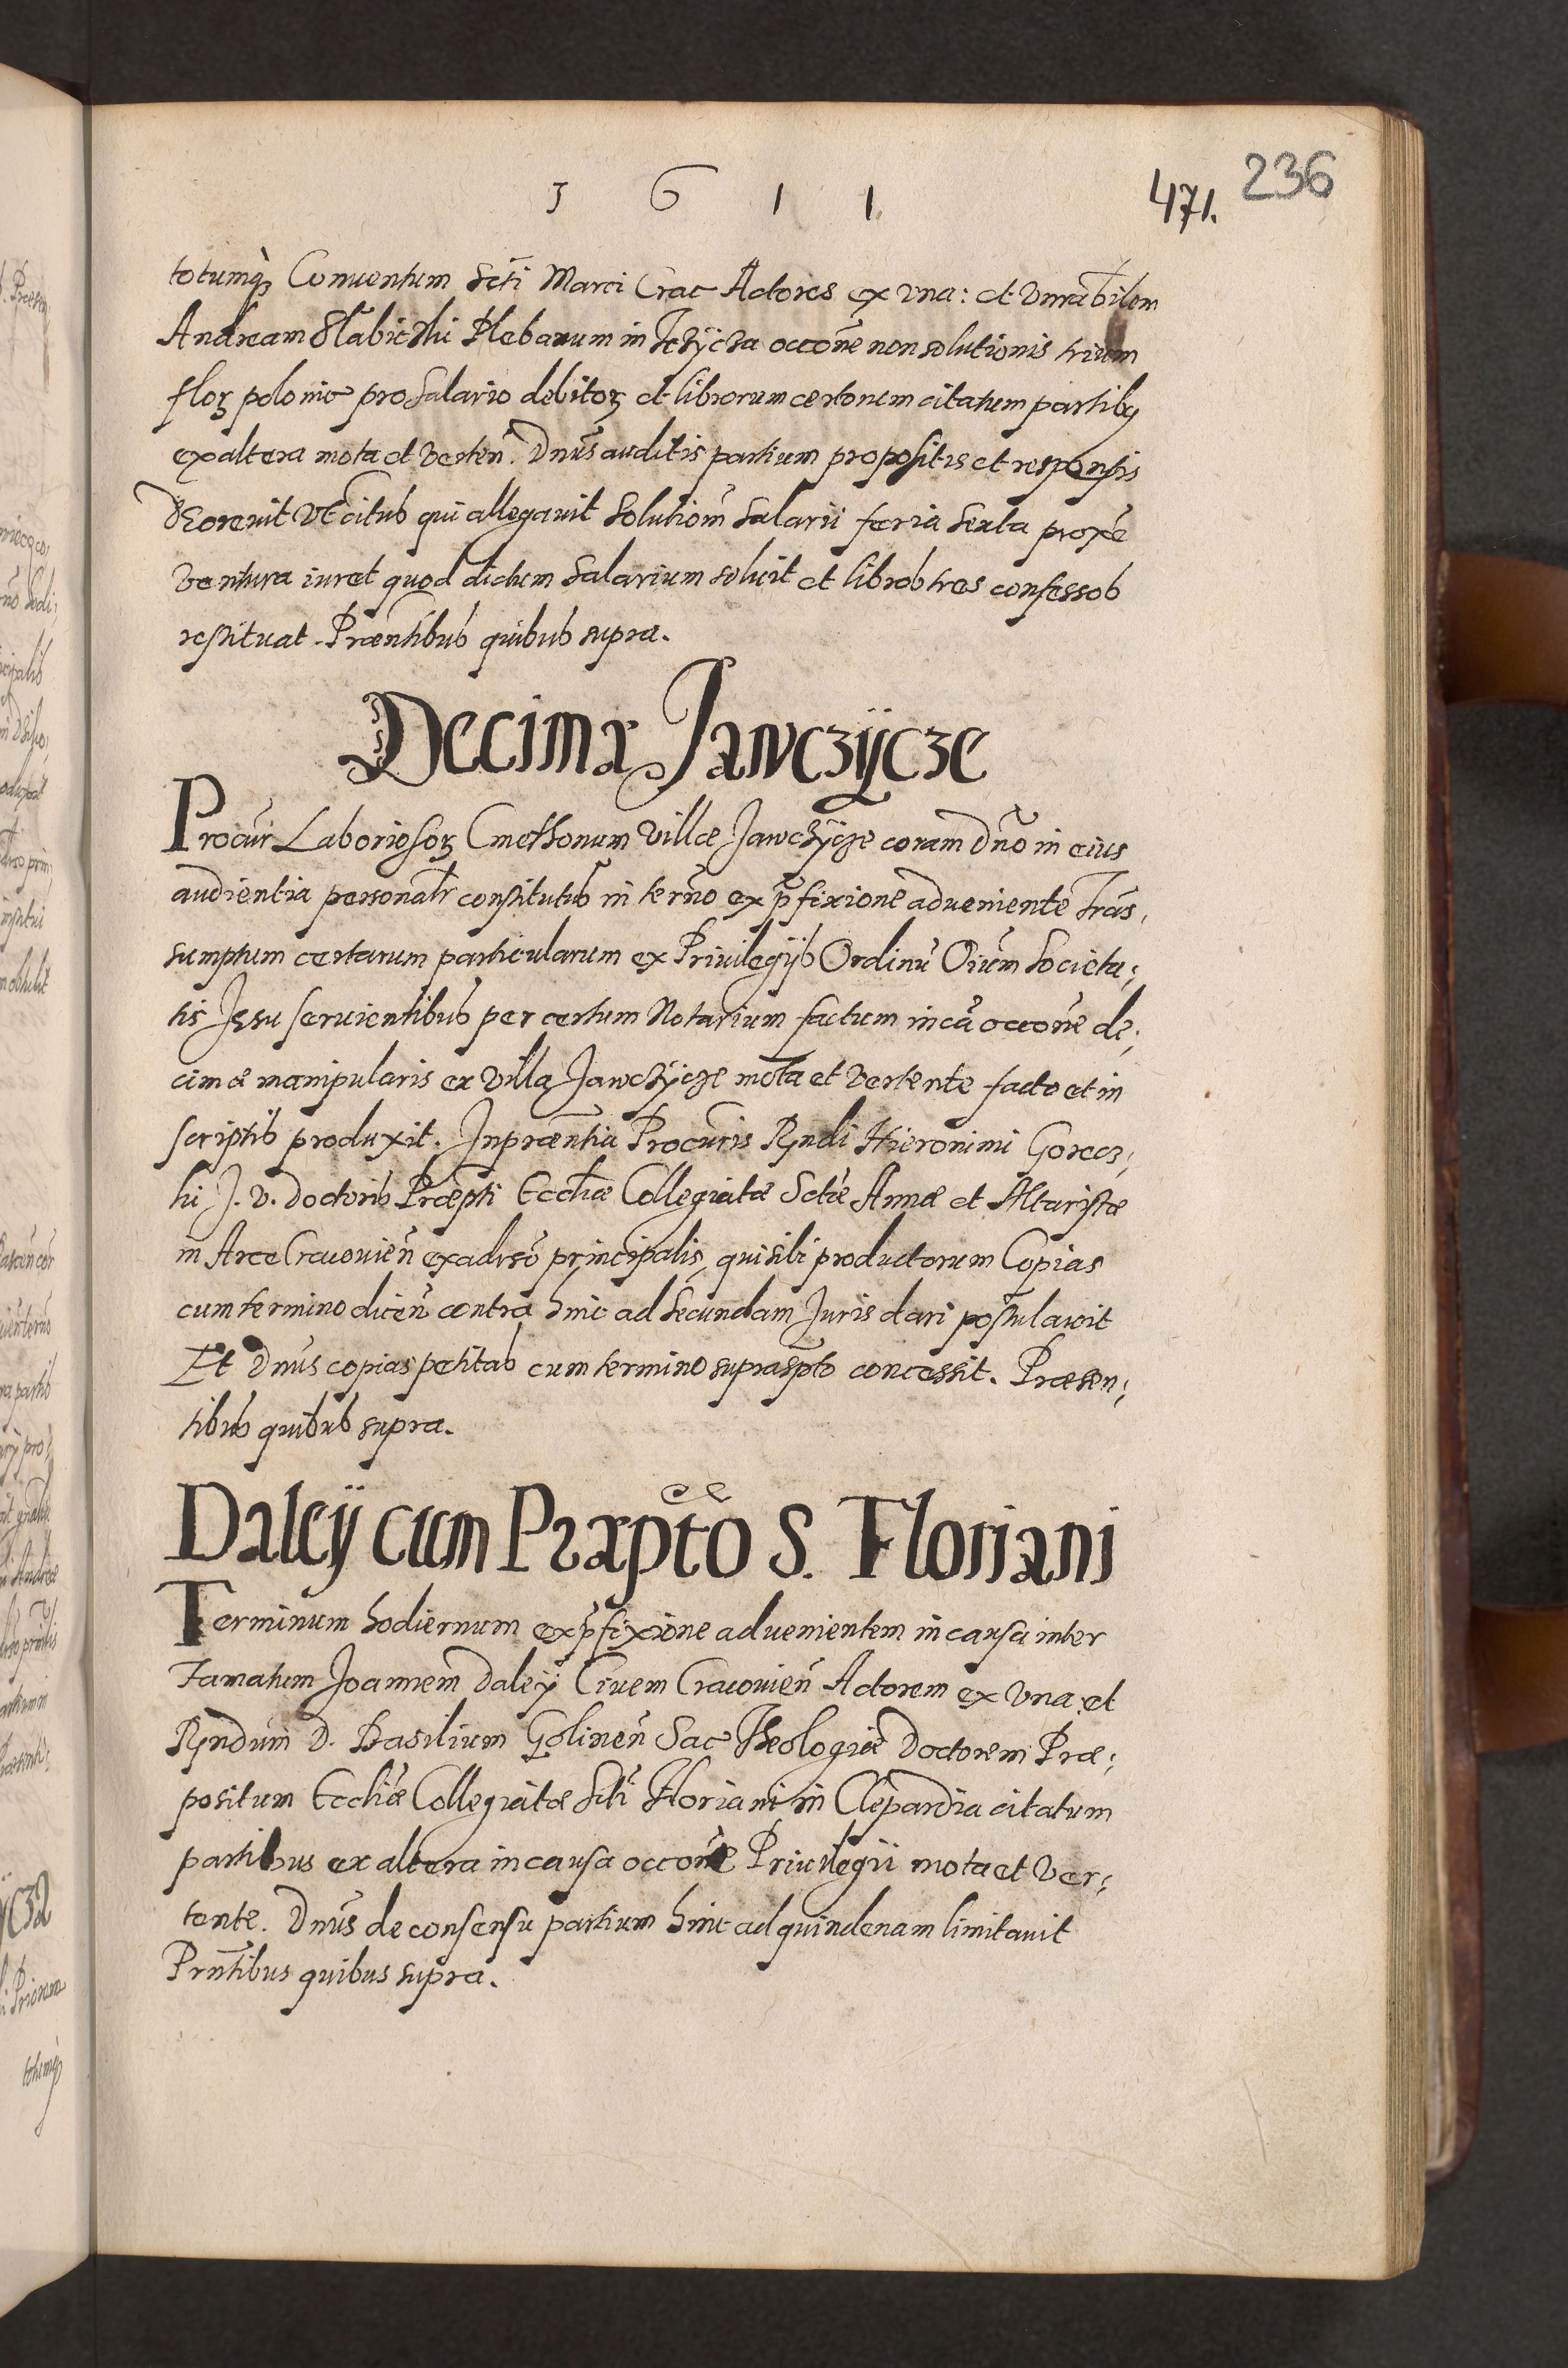 1 6 1 1
471. 236
totumq̀ȝ Conuentum Scti Marci Crac Actores ex vna: et Vnrabilem
Andream Slabickhi Plebanum in occoñe non solutionis trium
floȝ polonic pro salario debitoȝ et librorum certorum citatum partibȝ
ex altera mota et verteñ. Dnus auditis partium propositis et responsis
decreuit vt citus qui allegauit solutioñ salarii feria sexta proxe
ventura iuret quod dictum salarium soluit et libros tres confessos
restituat. Præntibus quibus supra.
Decima Jawczÿcze
Procur̃ Laboriosoȝ Cmethonum Villæ Jawczÿcze coram Dño in eius
audientia personalr constitutus in termo ex p̃fixione adueniente Trãs,
sumptum certarum particularum ex Priuilegijs Ordinũ Oium Societa;
tis Jesu seruientibus per certum Notarium factum in cã occoñe de;
cimæ manipularis ex villa Jawczÿcze mota et vertente facto et in
scriptis produxit. In præntia Procuris Rndi Hieronimi Gorecz;
ki J. V. doctoris Præpti Eccliæ Collegiatæ Sctæ Annæ et Altaristæ
in Arce Cracouieñ ex adũso principalis, qui sibi productorum Copias
cum termino diceñ contra hinc ad secundam Juris dari postulauit
Et Dnus copias petitas cum termino suprascpto concessit. Præsen;
tibus quibus supra.
Daleÿ cum Præpto S. Floriani
Terminum hodiernum ex p̃fixione aduenientem in causa inter
Famatum Joannem Daleÿ Ciuem Cracouieñ Actorem ex vna et
Rndum D. Basilium Golineñ Sac Theologiæ Doctorem Præ;
positum Eccliæ Collegiatæ Scti Floriani in Clepardia citatum
partibus ex altera in causa occoñe Priuilegii mota et ver;
tente. Dnus de consensu partium hinc ad quindenam limitauit
Prntibus quibus supra.